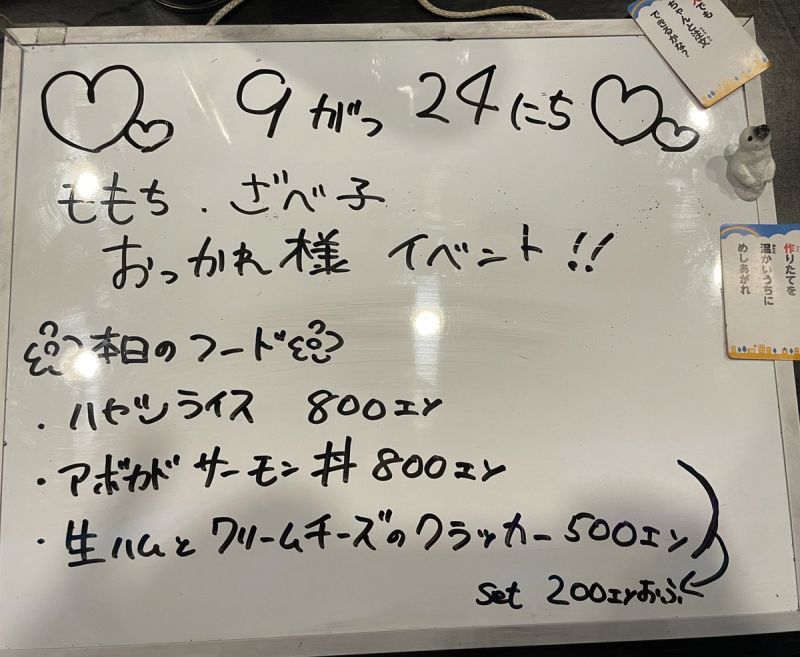 9がつ 24にち
ももち . ざべ子
おっかれ様 イベント !!
本日のフード
・ハヤシライス 800エン
・アボカドサーモン丼 800エン
・生ハムとクリームチーズのクラッカー 500エン
set 200エンおふ
でも
ちゃんと注文
できるかな?
作りたてを
温かいうちに
めしあがれ